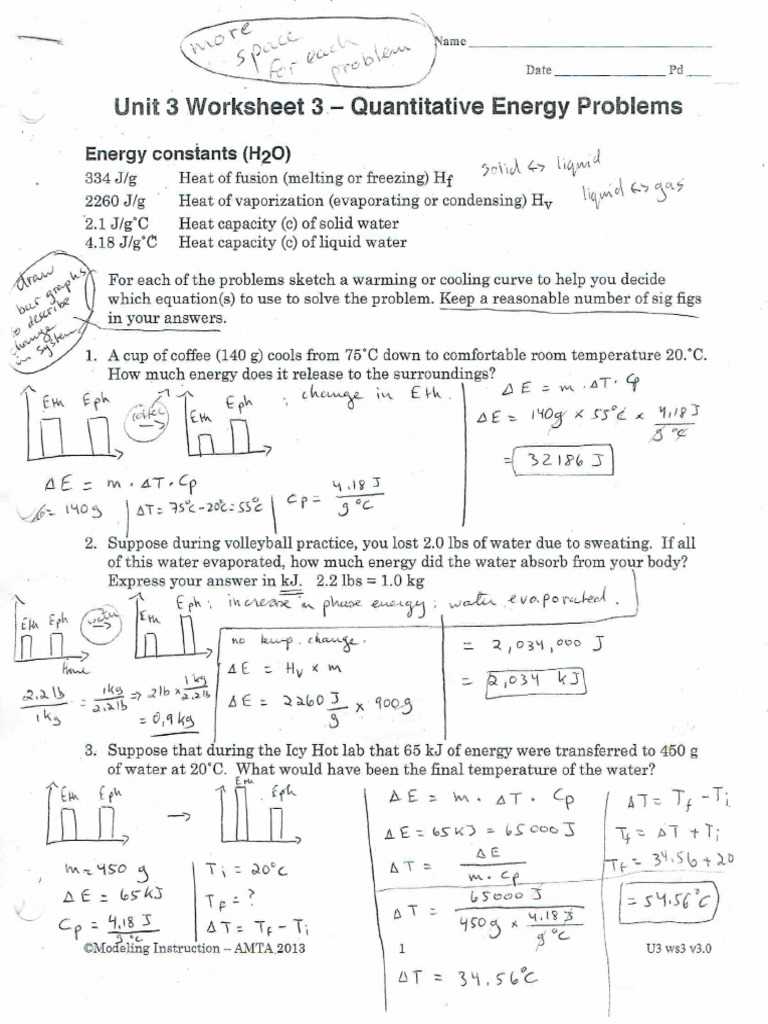 more
space
for each
problem
Name
Date Pd
Unit 3 Worksheet 3 – Quantitative Energy Problems
Energy constants (H2O)
334 J/g Heat of fusion (melting or freezing) Hf solid ↔ liquid
2260 J/g Heat of vaporization (evaporating or condensing) Hv liquid ↔ gas
2.1 J/g°C Heat capacity (c) of solid water
4.18 J/g°C Heat capacity (c) of liquid water
draw
bar graphs
to describe
change
in system
For each of the problems sketch a warming or cooling curve to help you decide
which equation(s) to use to solve the problem. Keep a reasonable number of sig figs
in your answers.
1. A cup of coffee (140 g) cools from 75°C down to comfortable room temperature 20.°C.
How much energy does it release to the surroundings?
Eth Eph
coffee
Eth Eph ; change in Eth.
ΔE = m · ΔT · Cp
m = 140g
ΔT = 75°C - 20°C = 55°C
Cp = 4.18 J / g °C
ΔE = m · ΔT · Cp
ΔE = 140g × 55°C × 4.18 J / g °C
= 32186 J
2. Suppose during volleyball practice, you lost 2.0 lbs of water due to sweating. If all
of this water evaporated, how much energy did the water absorb from your body?
Express your answer in kJ. 2.2 lbs = 1.0 kg
Eth Eph
water
time
Eth Eph ; increase in phase energy ; water evaporated.
2.2 lb / 1 kg = 1kg / 2.2 lb ⇒ 2lb × 1 kg / 2.2 lb
= 0,9 kg
no temp. change.
ΔE = Hv × m
ΔE = 2260 J / g × 900g
= 2,034,000 J
= 2,034 kJ
3. Suppose that during the Icy Hot lab that 65 kJ of energy were transferred to 450 g
of water at 20°C. What would have been the final temperature of the water?
Eth Eph
→
Eth Eph
m = 450 g
ΔE = 65 kJ
Cp = 4.18 J / g °C
Ti = 20°C
Tf = ?
ΔT = Tf - Ti
ΔE = m · ΔT · Cp
ΔE = 65 kJ = 65000 J
ΔT = ΔE / m · Cp
ΔT = 65000 J / 450g × 4.18 J / g °C
ΔT = 34.56°C
ΔT = Tf - Ti
Tf = ΔT + Ti
Tf = 34.56 + 20
= 54.56°C
©Modeling Instruction – AMTA 2013 1 U3 ws3 v3.0